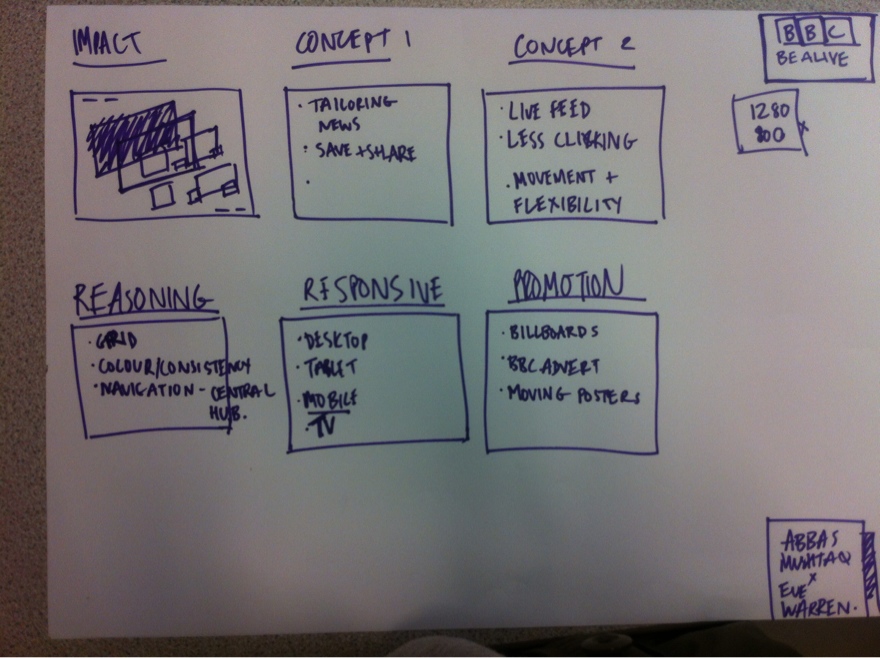 IMPACT
CONCEPT 1
· TAILORING
NEWS
· SAVE + SHARE
·
CONCEPT 2
· LIVE FEED
· LESS CLICKING
· MOVEMENT +
FLEXIBILITY
BBC
BEALIVE
1280
800 x
REASONING
· GRID
· COLOUR/CONSISTENCY
· NAVIGATION - CENTRAL
HUB.
RESPONSIVE
· DESKTOP
· TABLET
· MOBILE
· TV
PROMOTION
· BILLBOARDS
· BBC ADVERT
· MOVING POSTERS
ABBAS
MUSHTAQ
x
EVE
WARREN.